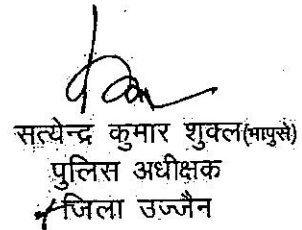 सत्येन्द्र कुमार शुक्ल(भापुसे)
पुलिस अधीक्षक
जिला उज्जैन